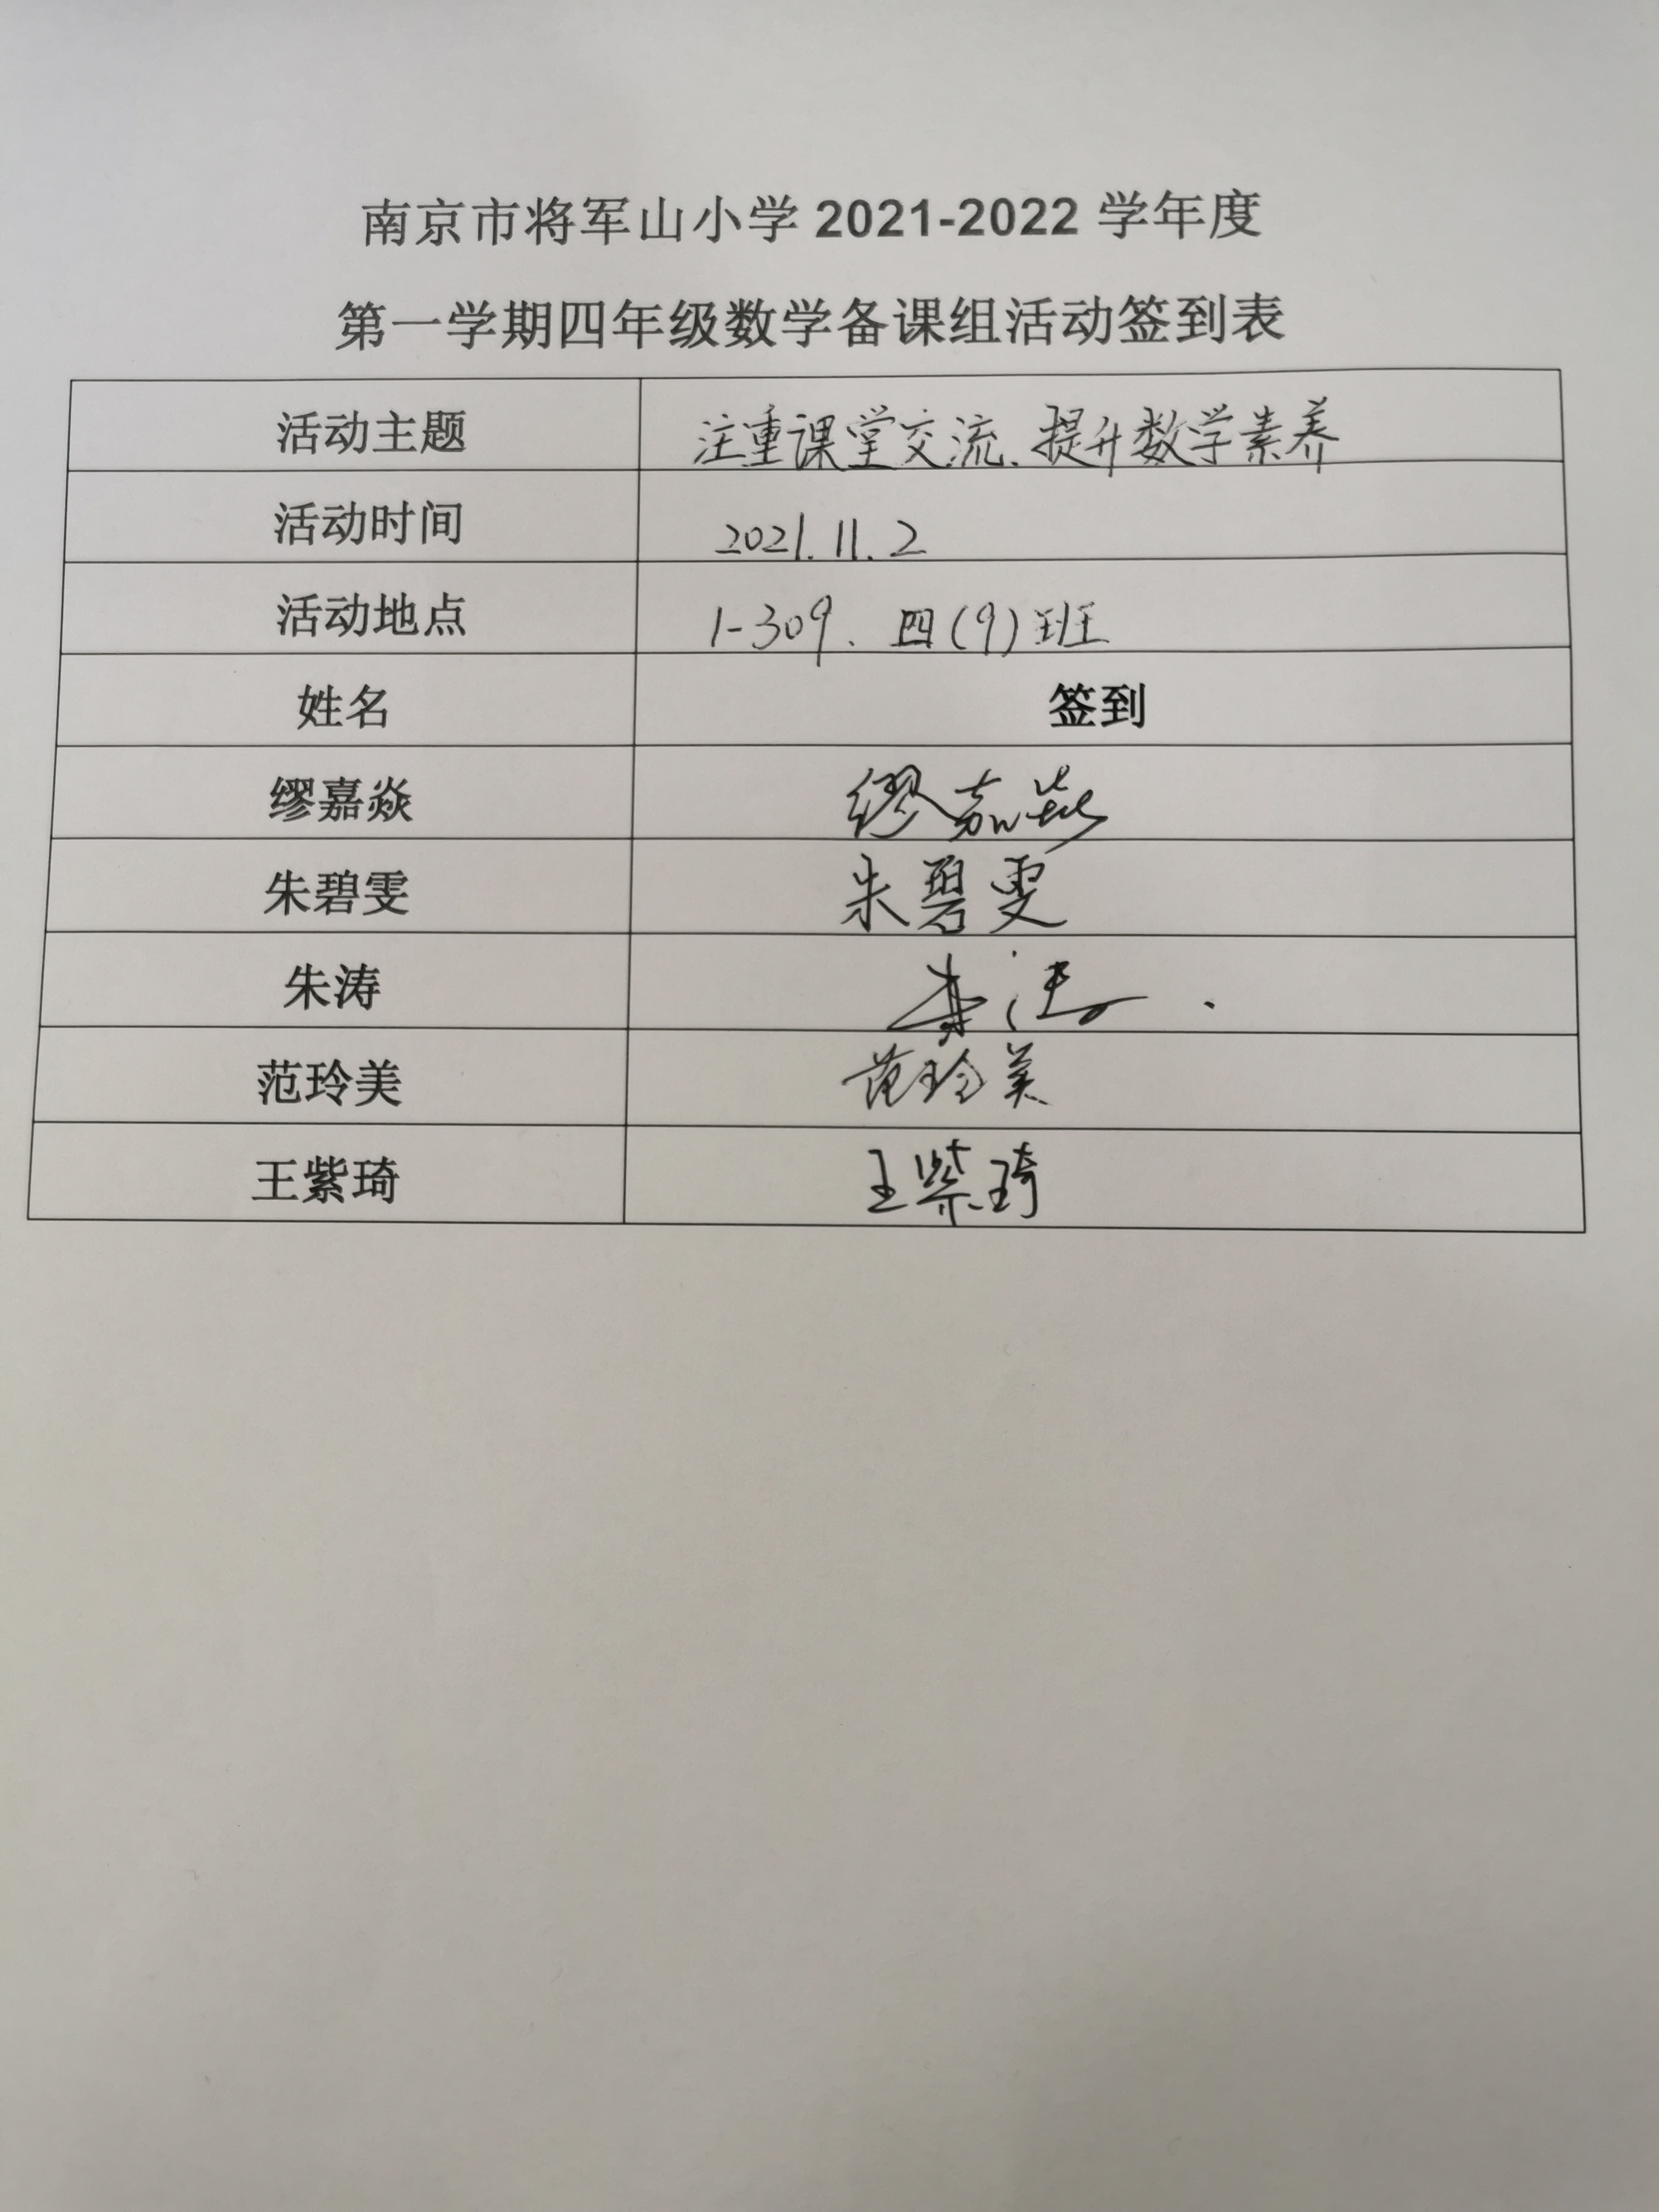 南京市将军山小学 2021-2022 学年度
第一学期四年级数学备课组活动签到表
活动主题 注重课堂交流、提升数学素养
活动时间 2021.11.2
活动地点 1-309、四(9)班
姓名 签到
缪嘉焱 缪嘉焱
朱碧雯 朱碧雯
朱涛 朱涛
范玲美 范玲美
王紫琦 王紫琦